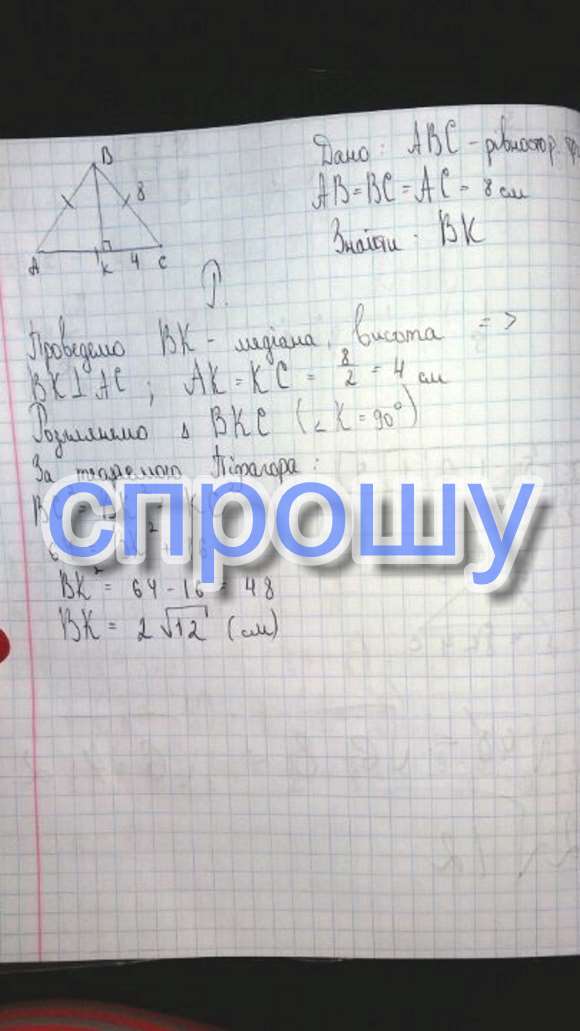 B
8
A
K 4 C
Дано: ABC - рівностор.
AB = BC = AC = 8 см
Знайти: BK
Р.
Проведемо BK - медіана, висота =>
BK ⊥ AC ; AK = KC = 8/2 = 4 см
Розглянемо Δ BKC (∠K = 90°)
За теоремою Піфагора:
спрошу
BK² = 64 - 16 = 48
BK = 2√12 (см)